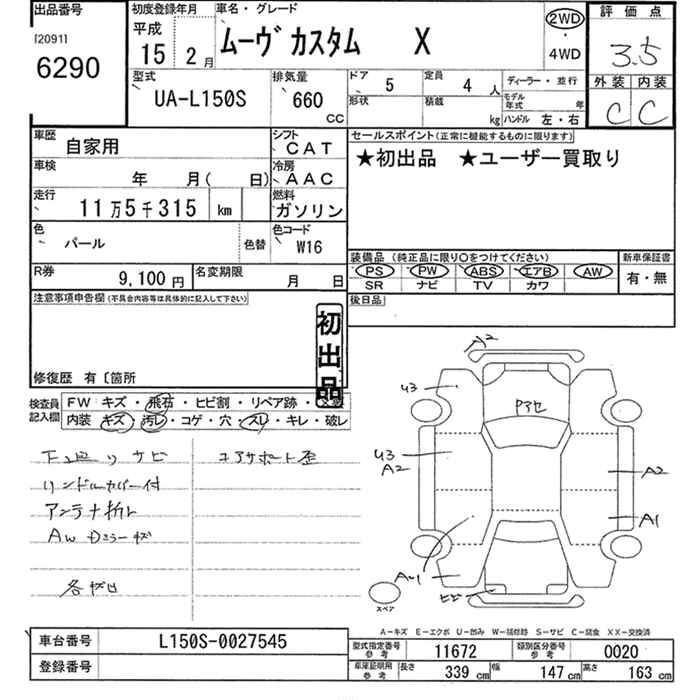 出品番号 初度登録年月 車名・グレード 評価点
[2091] 平成 ムーヴ カスタム X 2WD 3.5
6290 15年 2月 ・ 4WD
外装 内装
型式 排気量 ドア 5 定員 4人 ディーラー・並行 C C
UA-L150S 660 CC 形状 積載 kg モデル年式 年
ハンドル 左・右
車歴 自家用 シフト CAT セールスポイント(正常に機能するものに限ります)
車検 年 月( 日) 冷房 AAC ★初出品 ★ユーザー買取り
走行 11万5千315 km 燃料 ガソリン
色 パール 色替 色コード W16
装備品 (純正品に限り○をつけてください) 新車保証書
R券 9,100円 名変期限 月 日 PS PW ABS エアB AW 有・無
SR ナビ TV カワ
注意事項申告欄(不具合内容等は具体的に記入して下さい) 後日品
初出品
修復歴 有〔箇所
検査員記入欄 FW キズ・飛石・ヒビ割・リペア跡・
内装 キズ・汚レ・コゲ・穴・スレ・キレ・破レ
下廻りサビ コアサポート歪
アンテナ折れ
A2
U3 Pアセ
U3
A2 A2
A1
A-1
ヒビ
スペア
A-キズ E-エクボ U-凹み W-補修跡 S-サビ C-腐食 XX-交換済
車台番号 L150S-0027545 型式指定番号 参考 11672 類別区分番号 参考 0020
登録番号 車庫証明用 参考 長さ 339 cm 幅 147 cm 高さ 163 cm